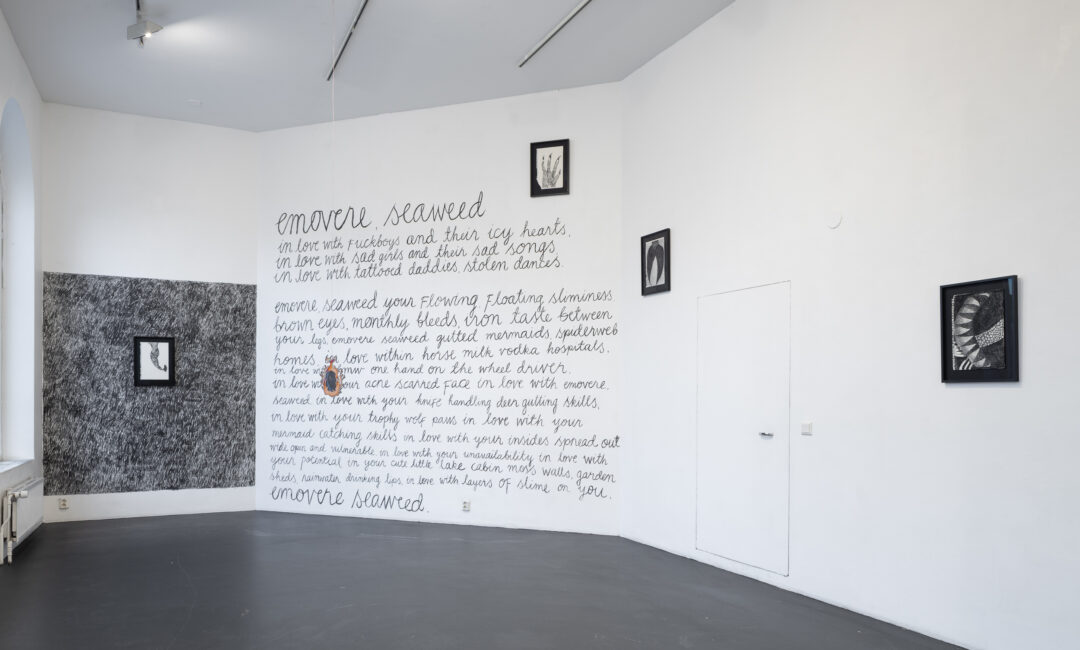 emovere, seaweed
in love with fuckboys and their icy hearts,
in love with sad girls and their sad songs,
in love with tattooed daddies, stolen dances.
emovere, seaweed your flowing floating sliminess,
brown eyes, monthly bleeds, iron taste between
your legs, emovere seaweed gutted mermaids spiderweb
homes, in love within horse milk vodka hospitals,
in love with bmw one hand on the wheel driver,
in love with your acne scarred face in love with emovere.
seaweed in love with your knife handling deer gutting skills,
in love with your trophy wolf paws in love with your
mermaid catching skills in love with your insides spread out
wide open and vulnerable in love with your unavailability in love with
your potential in your cute little lake cabin moss walls, garden
sheds, rainwater drinking lips, in love with layers of slime on you,
emovere seaweed.